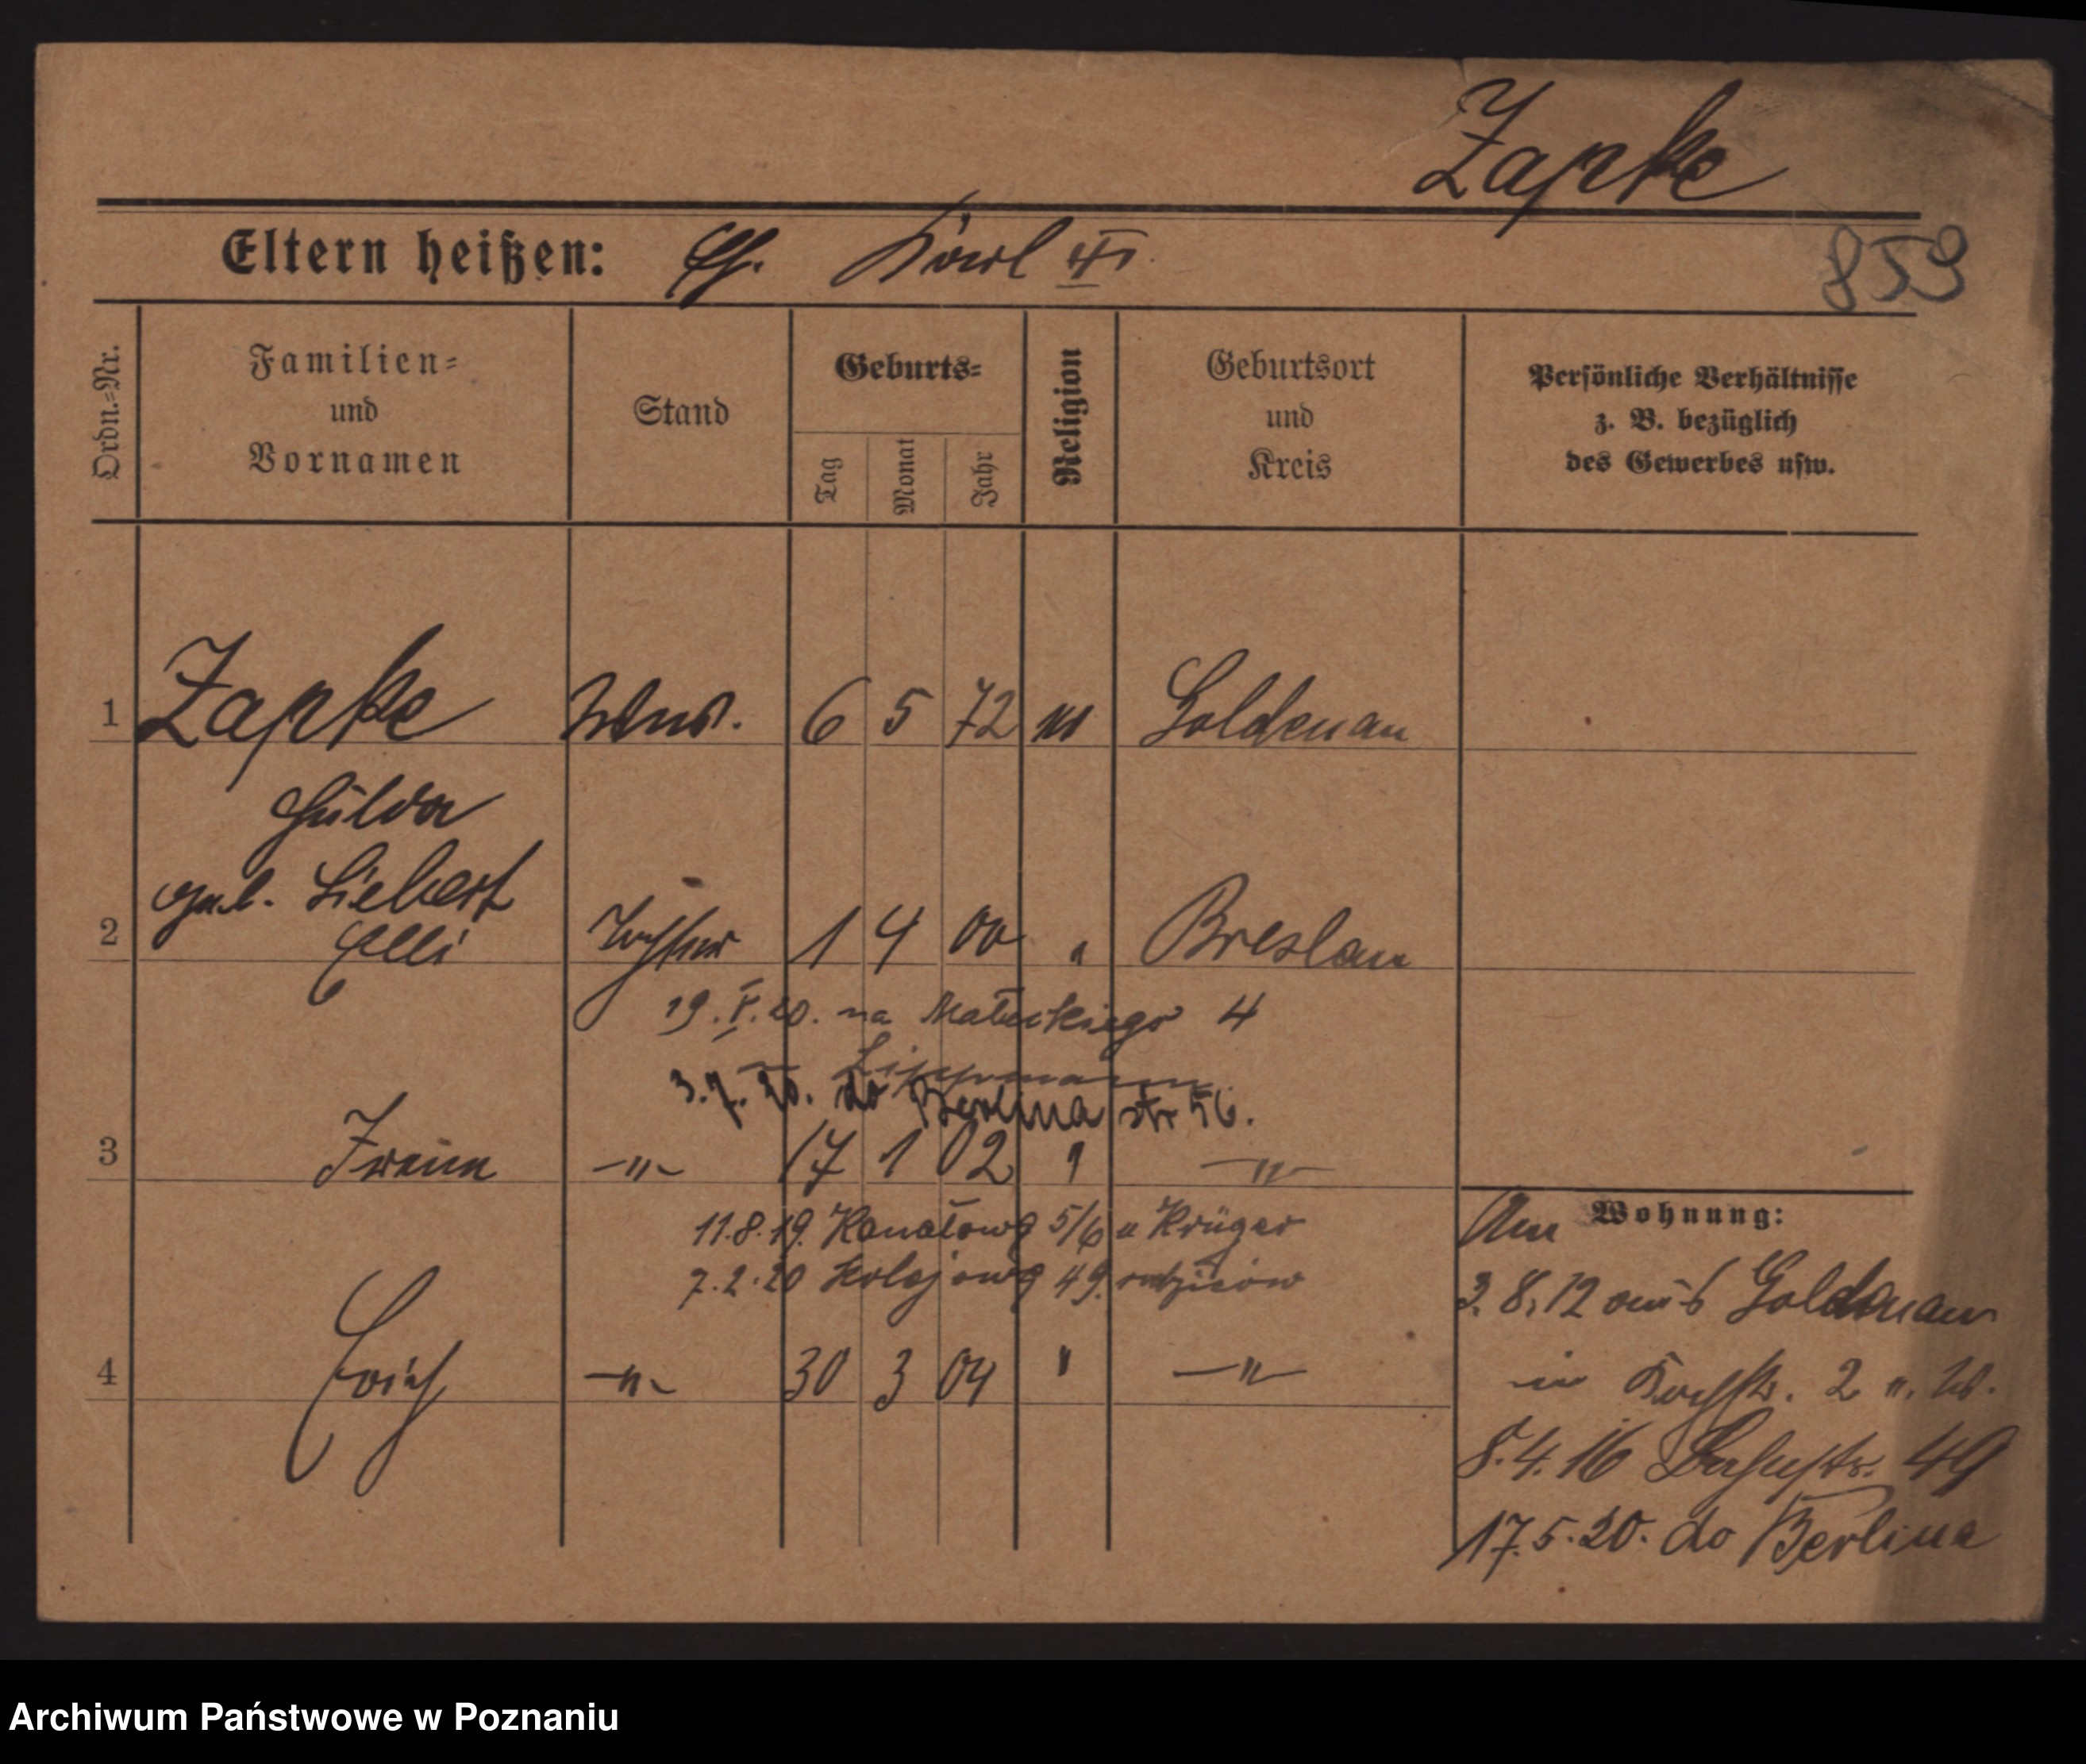 Zapke
Eltern heißen: Karl III
859
Ordn.=Nr.
Familien=
und
Vornamen
Stand
Geburts=
Tag
Monat
Jahr
Religion
Geburtsort
und
Kreis
Persönliche Verhältnisse
z. B. bezüglich
des Gewerbes usw.
1 Zapke Wwe. 6 5 72 Goldenau
geb. Liebert
2 Elli Tochter 1 4 00 " Breslau
19.V.20. na Małeckiego 4
Lippmann
3.7.20. do Berlina str 56.
3 -"- 17 1 02 " -"-
11.8.19. Kanałowa 5/6 u Krüger
7.2.20 Kolejowa 49. rodziców
4 Erich -"- 30 3 04 " -"-
Wohnung:
Am
3.8.12 aus Goldenau
in 2
8.4.16 49
17.5.20. do Berlina
Archiwum Państwowe w Poznaniu